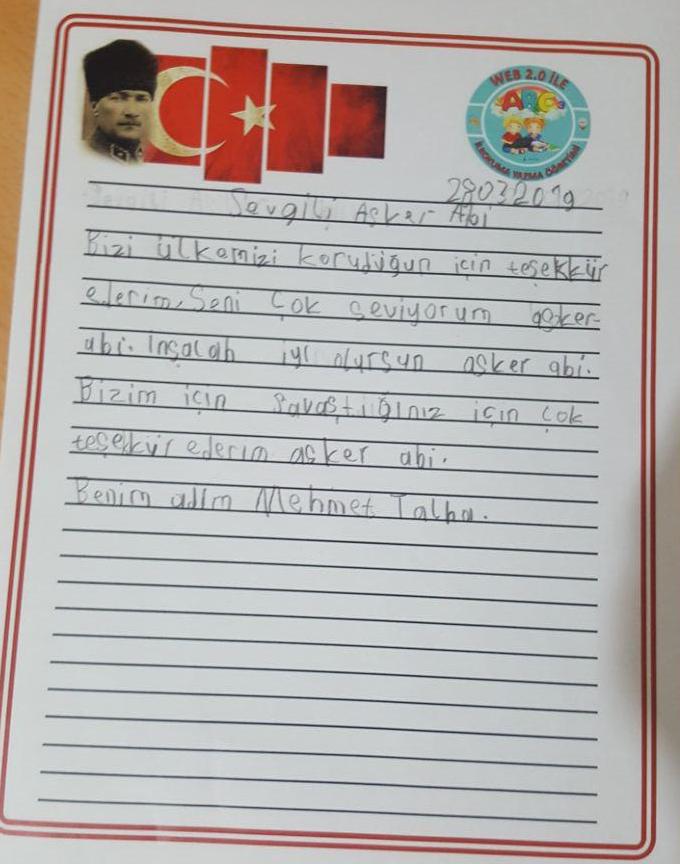 WEB 2.0 İLE
ARGE
İLKOKUMA YAZMA ÖĞRETİMİ
28032019
Sevgili Asker Abi
Bizi ülkemizi koruduğun için teşekkür
ederim. Seni çok seviyorum asker
abi. inşalah iyi olursun asker abi.
Bizim için savaştığınız için çok
teşekkür ederim asker abi.
Benim adım Mehmet Talha.